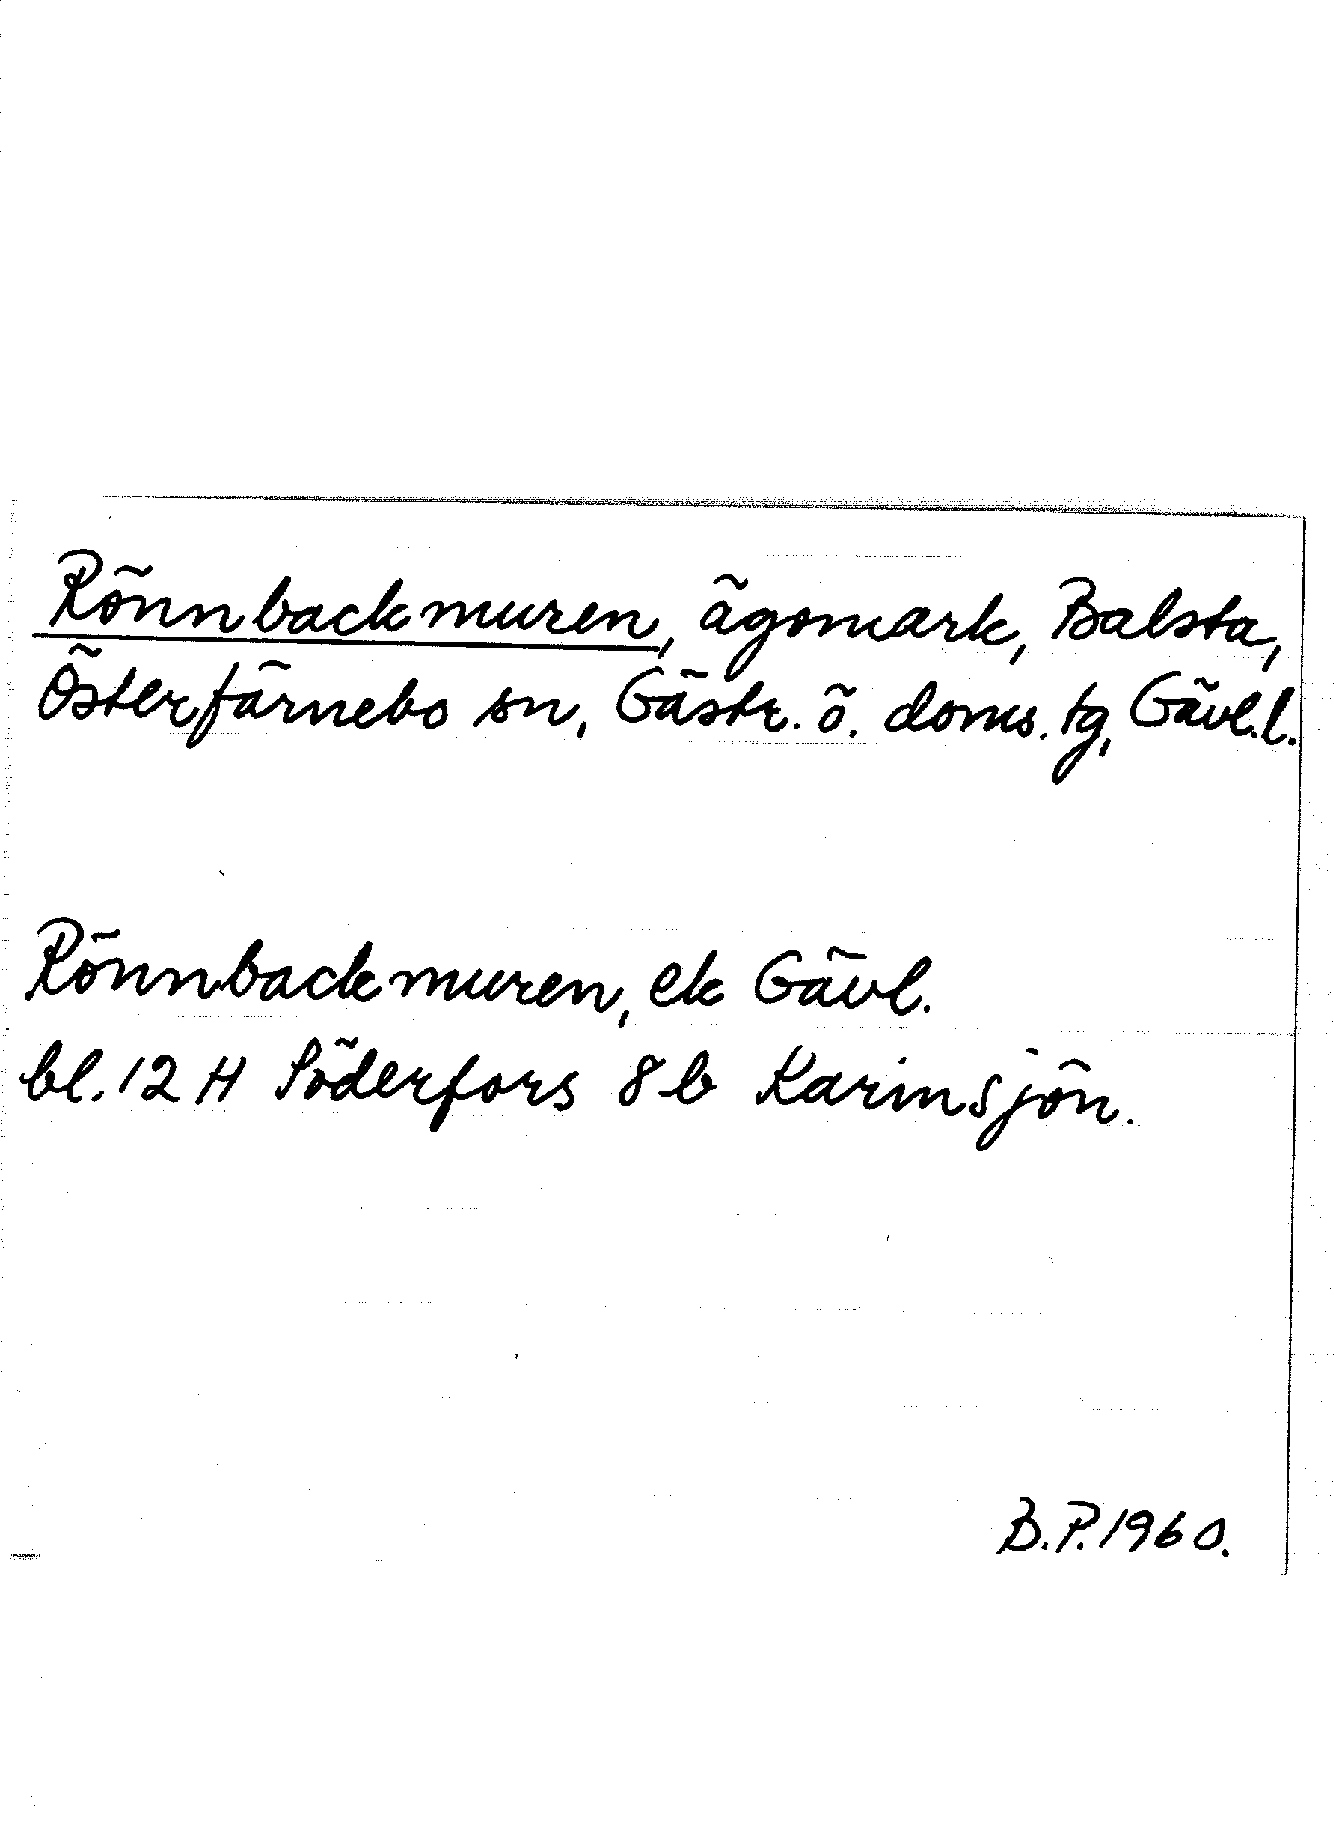 Rönnbackmuren, ägomark, Balsta,
Österfärnebo sn, Gästr. ö. doms. tg, Gävl.l.
Rönnbackmuren, ek Gävl.
bl. 12 H Söderfors 8 b Karinsjön.
B.P. 1960.